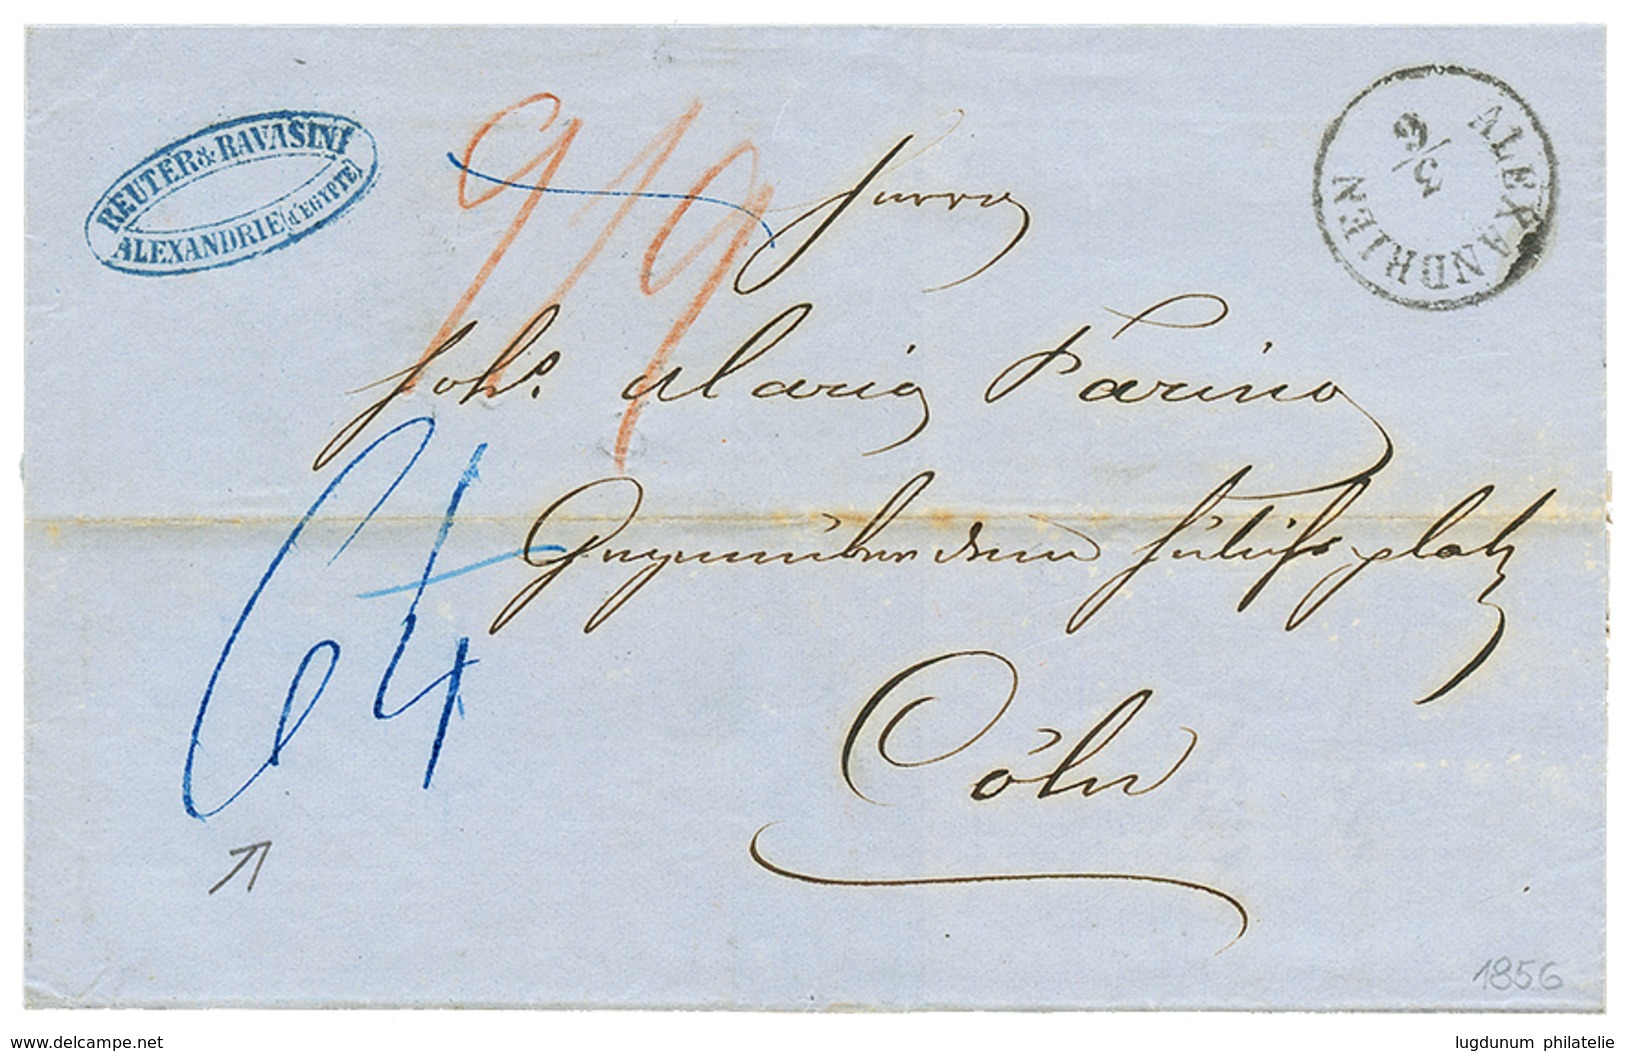 REUTER & RAVASINI
ALEXANDRIE (d'EGYPTE)
ALEXANDRIEN
5/6
9/9
Herrn
Joh. Maria Farina
Gegenüber dem Jülichsplatz
Cöln
64
1856
delcampe.net
lugdunum philatelie